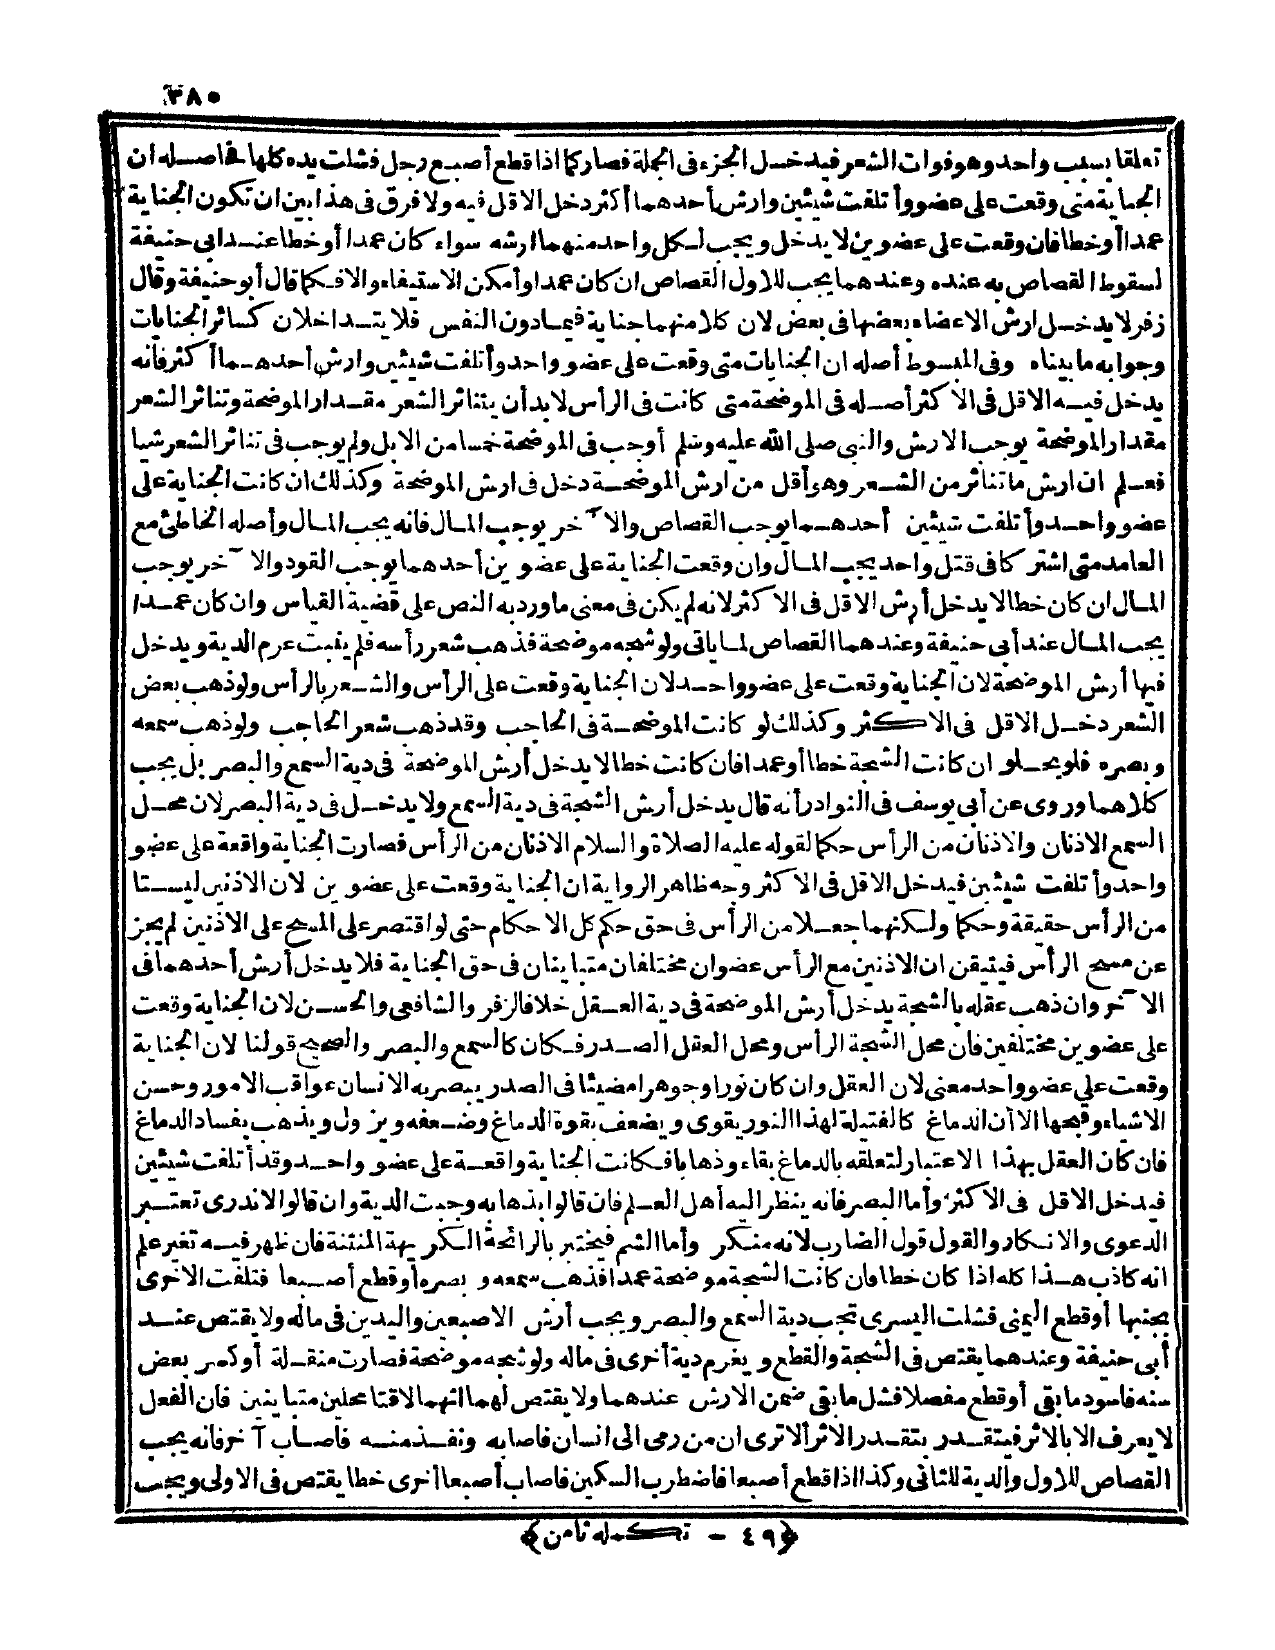 ٣٨٥
تعلقا بسبب واحد وهو فوات الشعر فيدخل الجزء في الجملة فصار كما اذا قطع أصبع رجل فشلت يده كلها فحاصله ان
الجناية متى وقعت على عضو وأتلفت شيئين وارش أحدهما أكثر دخل الاقل فيه ولا فرق في هذا بين ان تكون الجناية
عمدا أو خطا فان وقعت على عضوين لا يدخل ويجب لكل واحد منهما ارشه سواء كان عمدا أو خطا عند ابي حنيفة
لسقوط القصاص به عنده وعندهما يجب للاول القصاص ان كان عمدا وأمكن الاستيفاء والا فكما قال أبو حنيفة وقال
زفر لا يدخل ارش الاعضاء بعضها في بعض لان كلا منهما جناية فيما دون النفس فلا يتداخلان كسائر الجنايات
وجوابه ما بيناه وفي المبسوط أصله ان الجنايات متى وقعت على عضو واحد وأتلفت شيئين وارش أحدهما أكثر فانه
يدخل فيه الاقل في الاكثر أصله في الموضحة متى كانت في الرأس لا بد أن يتناثر الشعر مقدار الموضحة وتناثر الشعر
مقدار الموضحة يوجب الارش والنبي صلى الله عليه وسلم أوجب في الموضحة خمسا من الابل ولم يوجب في تناثر الشعر شيا
فعلم ان ارش ما تناثر من الشعر وهو أقل من ارش الموضحة دخل في ارش الموضحة وكذلك ان كانت الجناية على
عضو واحد وأتلفت شيئين أحدهما يوجب القصاص والآخر يوجب المال فانه يجب المال وأصله الخاطئ مع
العامد متى اشتركا في قتل واحد يجب المال وان وقعت الجناية على عضوين أحدهما يوجب القود والآخر يوجب
المال ان كان خطا لا يدخل أرش الاقل في الاكثر لانه لم يكن في معنى ما ورد به النص على قضية القياس وان كان عمدا
يجب المال عند أبي حنيفة وعندهما القصاص لما ياتي ولو شجه موضحة فذهب شعر رأسه فلم ينبت غرم الدية ويدخل
فيها أرش الموضحة لان الجناية وقعت على عضو واحد لان الجناية وقعت على الرأس والشعر بالرأس ولو ذهب بعض
الشعر دخل الاقل في الاكثر وكذلك لو كانت الموضحة في الحاجب وقد ذهب شعر الحاجب ولو ذهب سمعه
وبصره فلو يخلو ان كانت الشجة خطا أو عمدا فان كانت خطا لا يدخل أرش الموضحة في دية السمع والبصر بل يجب
كلاهما وروى عن أبي يوسف في النوادر أنه قال يدخل أرش الشجة في دية السمع ولا يدخل في دية البصر لان محل
السمع الاذنان والاذنان من الرأس حكما لقوله عليه الصلاة والسلام الاذنان من الرأس فصارت الجناية واقعة على عضو
واحد وأتلفت شيئين فيدخل الاقل في الاكثر وجه ظاهر الرواية ان الجناية وقعت على عضوين لان الاذنين ليستا
من الرأس حقيقة وحكما ولكنهما جعلا من الرأس في حق حكم كل الاحكام حتى لو اقتصر على المسح على الاذنين لم يجز
عن مسح الرأس فيتيقن ان الاذنين مع الرأس عضوان مختلفان متباينان في حق الجناية فلا يدخل أرش أحدهما في
الآخر وان ذهب عقله بالشجة يدخل أرش الموضحة في دية العقل خلافا لزفر والشافعي والحسن لان الجناية وقعت
على عضوين مختلفين فان محل الشجة الرأس ومحل العقل الصدر فكان كالسمع والبصر والصحيح قولنا لان الجناية
وقعت على عضو واحد معنى لان العقل وان كان نورا وجوهرا مضيئا في الصدر يبصر به الانسان عواقب الامور وحسن
الاشياء وقبحها الا أن الدماغ كالفتيلة لهذا النور يقوى ويضعف بقوة الدماغ وضعفه ويزول ويذهب بفساد الدماغ
فان كان العقل بهذا الاعتبار لتعلقه بالدماغ بقاء وذهابا فكانت الجناية واقعة على عضو واحد وقد أتلفت شيئين
فيدخل الاقل في الاكثر وأما البصر فانه ينظر اليه أهل العلم فان قالوا بذهابه وجبت الدية وان قالوا لا ندرى تعتبر
الدعوى والانكار والقول قول الضارب لانه منكر وأما الشم فيختبر بالرائحة الكريهة المنتنة فان ظهر فيه تغير علم
انه كاذب هذا كله اذا كان خطا فان كانت الشجة موضحة عمدا فذهب سمعه وبصره أو قطع أصبعا فتلفت الاخرى
بجنبها أو قطع اليمنى فشلت اليسرى تجب دية السمع والبصر ويجب أرش الاصبعين واليدين في ماله ولا يقتص عند
أبي حنيفة وعندهما يقتص في الشجة والقطع ويغرم دية أخرى في ماله ولو شجه موضحة فصارت منقلة أو كسر بعض
سنه فاسود ما بقي أو قطع مفصلا فشل ما بقي ضمن الارش عندهما ولا يقتص لهما انهما لاقتا محلين متباينين فان الفعل
لا يعرف الا بالاثر فيتقدر بتقدر الاثر ألا ترى ان من رمى الى انسان فاصابه ونفذ منه فاصاب آخر فانه يجب
القصاص للاول والدية للثاني وكذا اذا قطع أصبعا فاضطرب السكين فاصاب أصبعا أخرى خطا يقتص في الاولى ويجب
﴿٤٩ - تكمله ثامن﴾